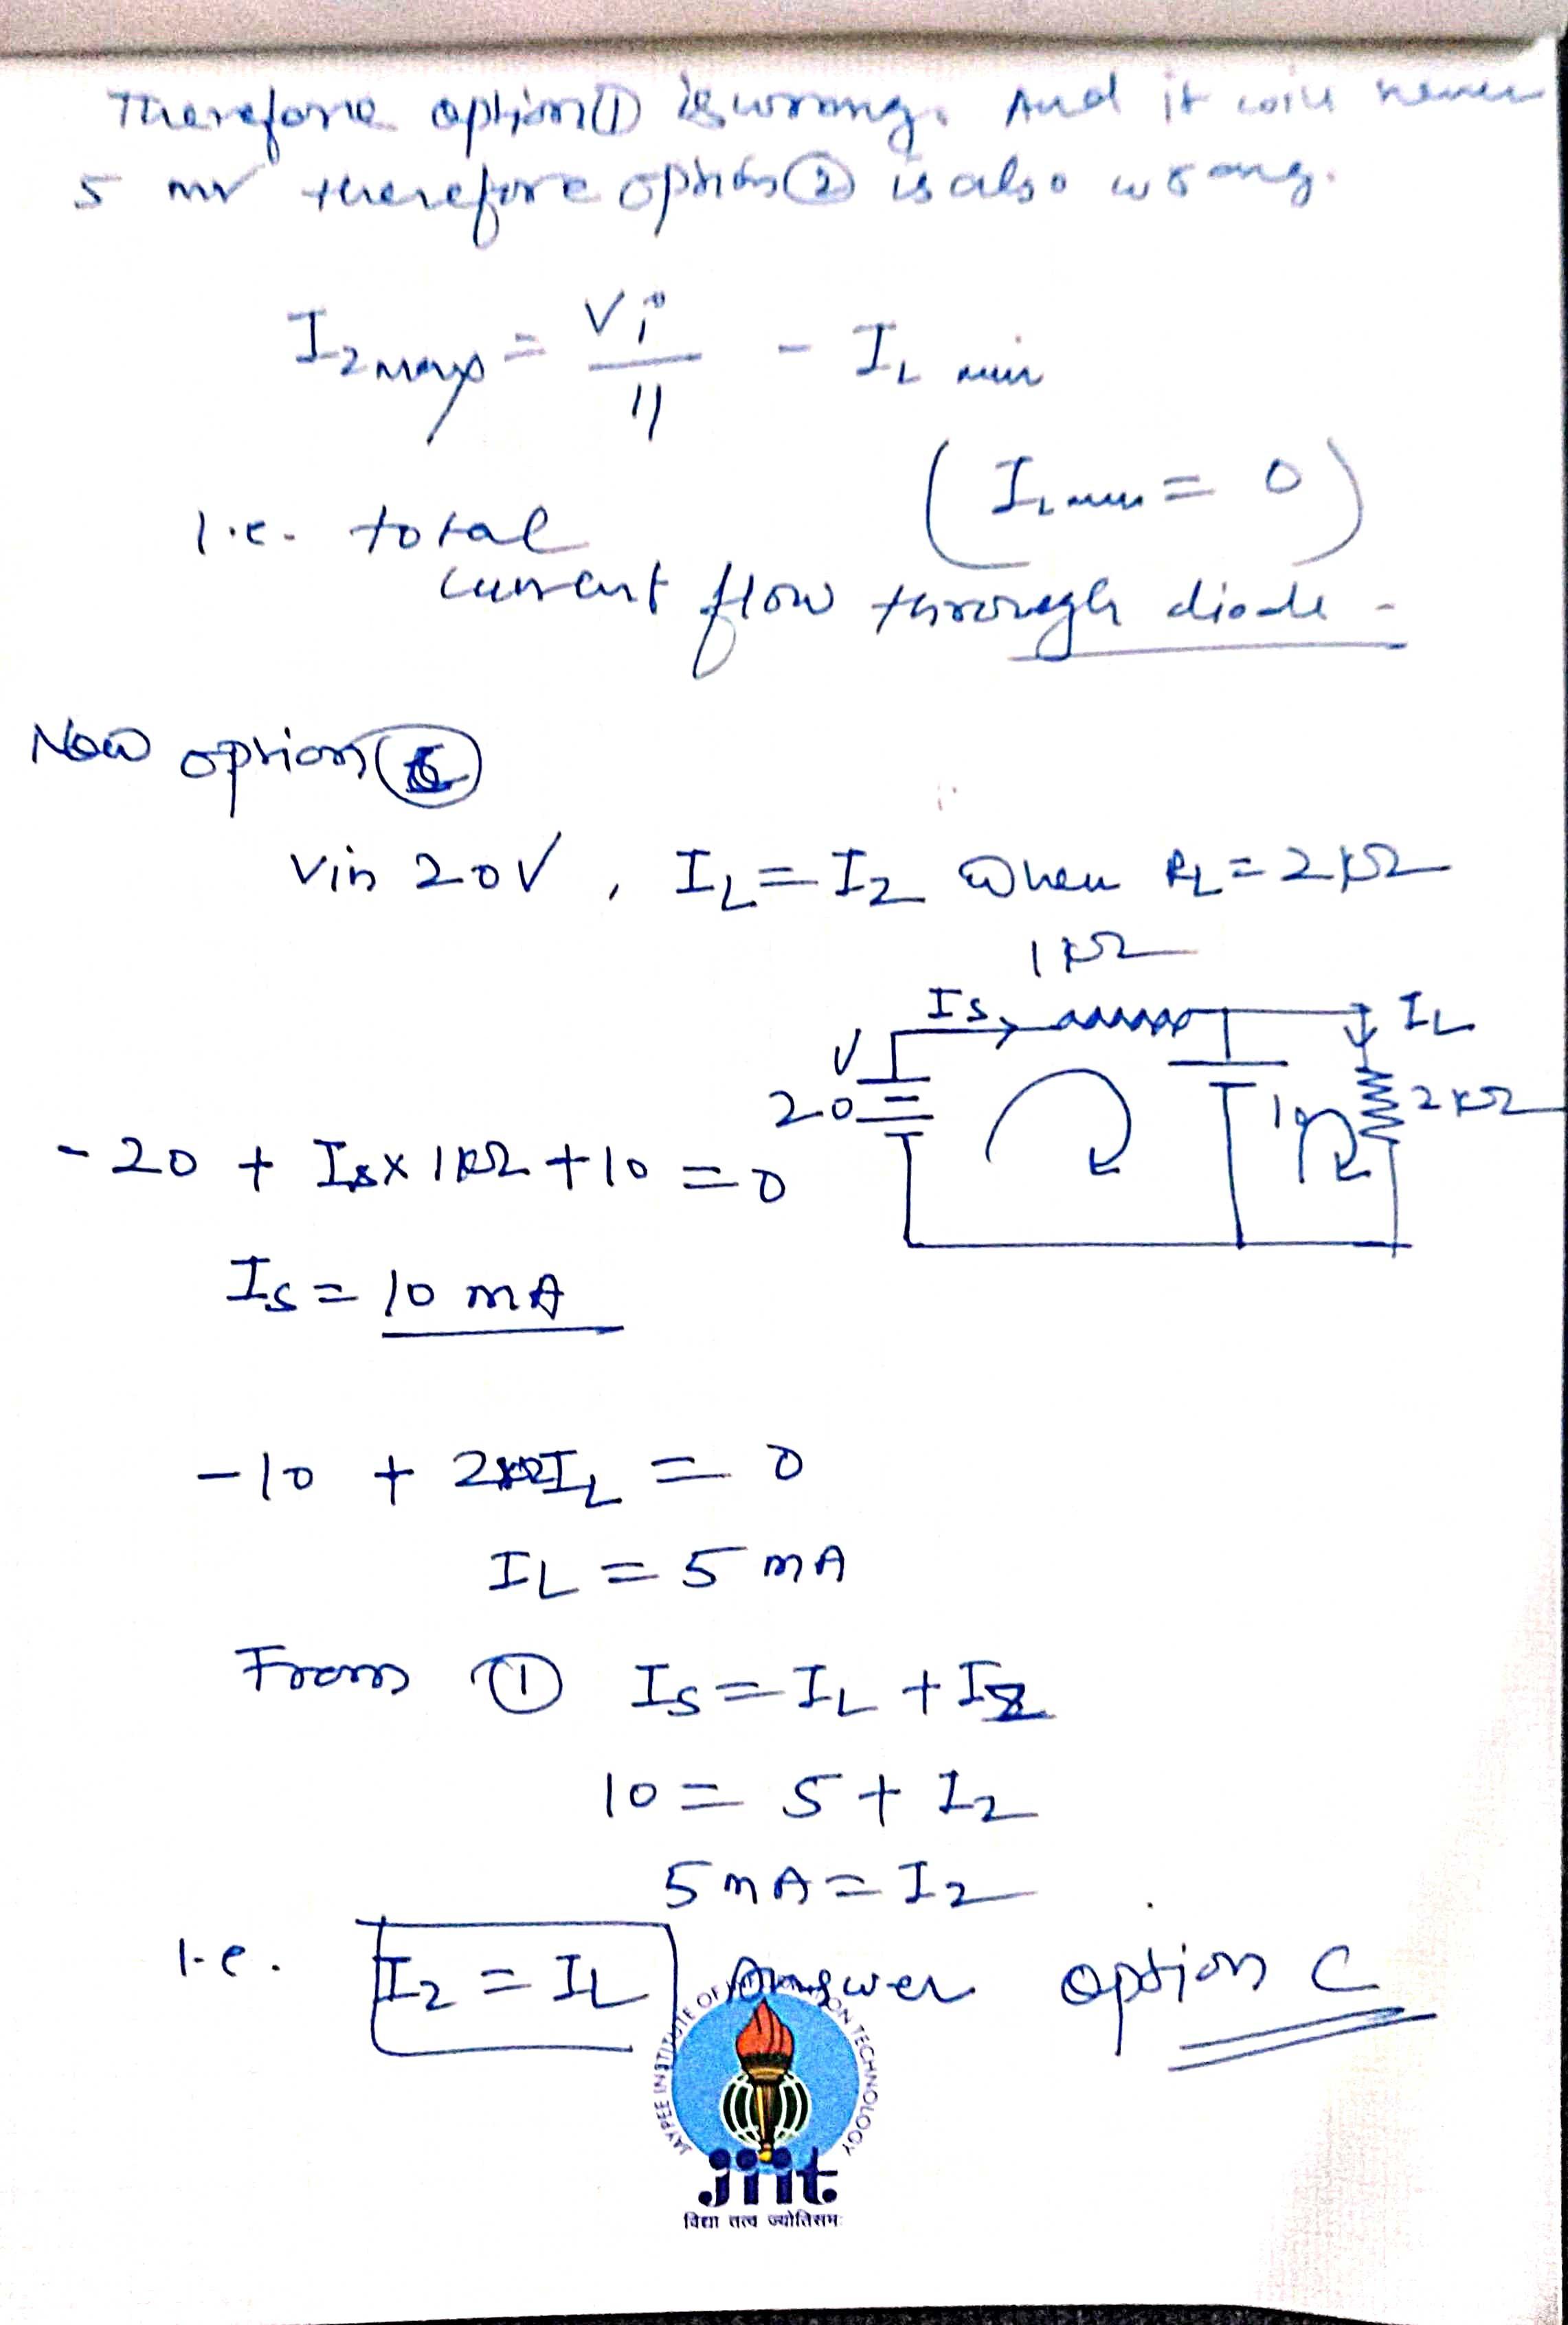 Therefore option① is wrong. And it will never
5 mv therefore option② is also wrong.
Izmax = Vi/11 - IL min
(ILmin = 0)
i.e. total
current flow through diode -
Now option
Vin 20V, IL = Iz when RL = 2kΩ
1kΩ
Is
IL
V
20
10
2kΩ
-20 + Is x 1kΩ + 10 = 0
Is = 10 mA
-10 + 2kΩIL = 0
IL = 5 mA
From ① Is = IL + Iz
10 = 5 + Iz
5 mA = Iz
i.e. Iz = IL Answer option C
JAYPEE INSTITUTE OF INFORMATION TECHNOLOGY
jiit
विद्या तत्व ज्योतिसमः